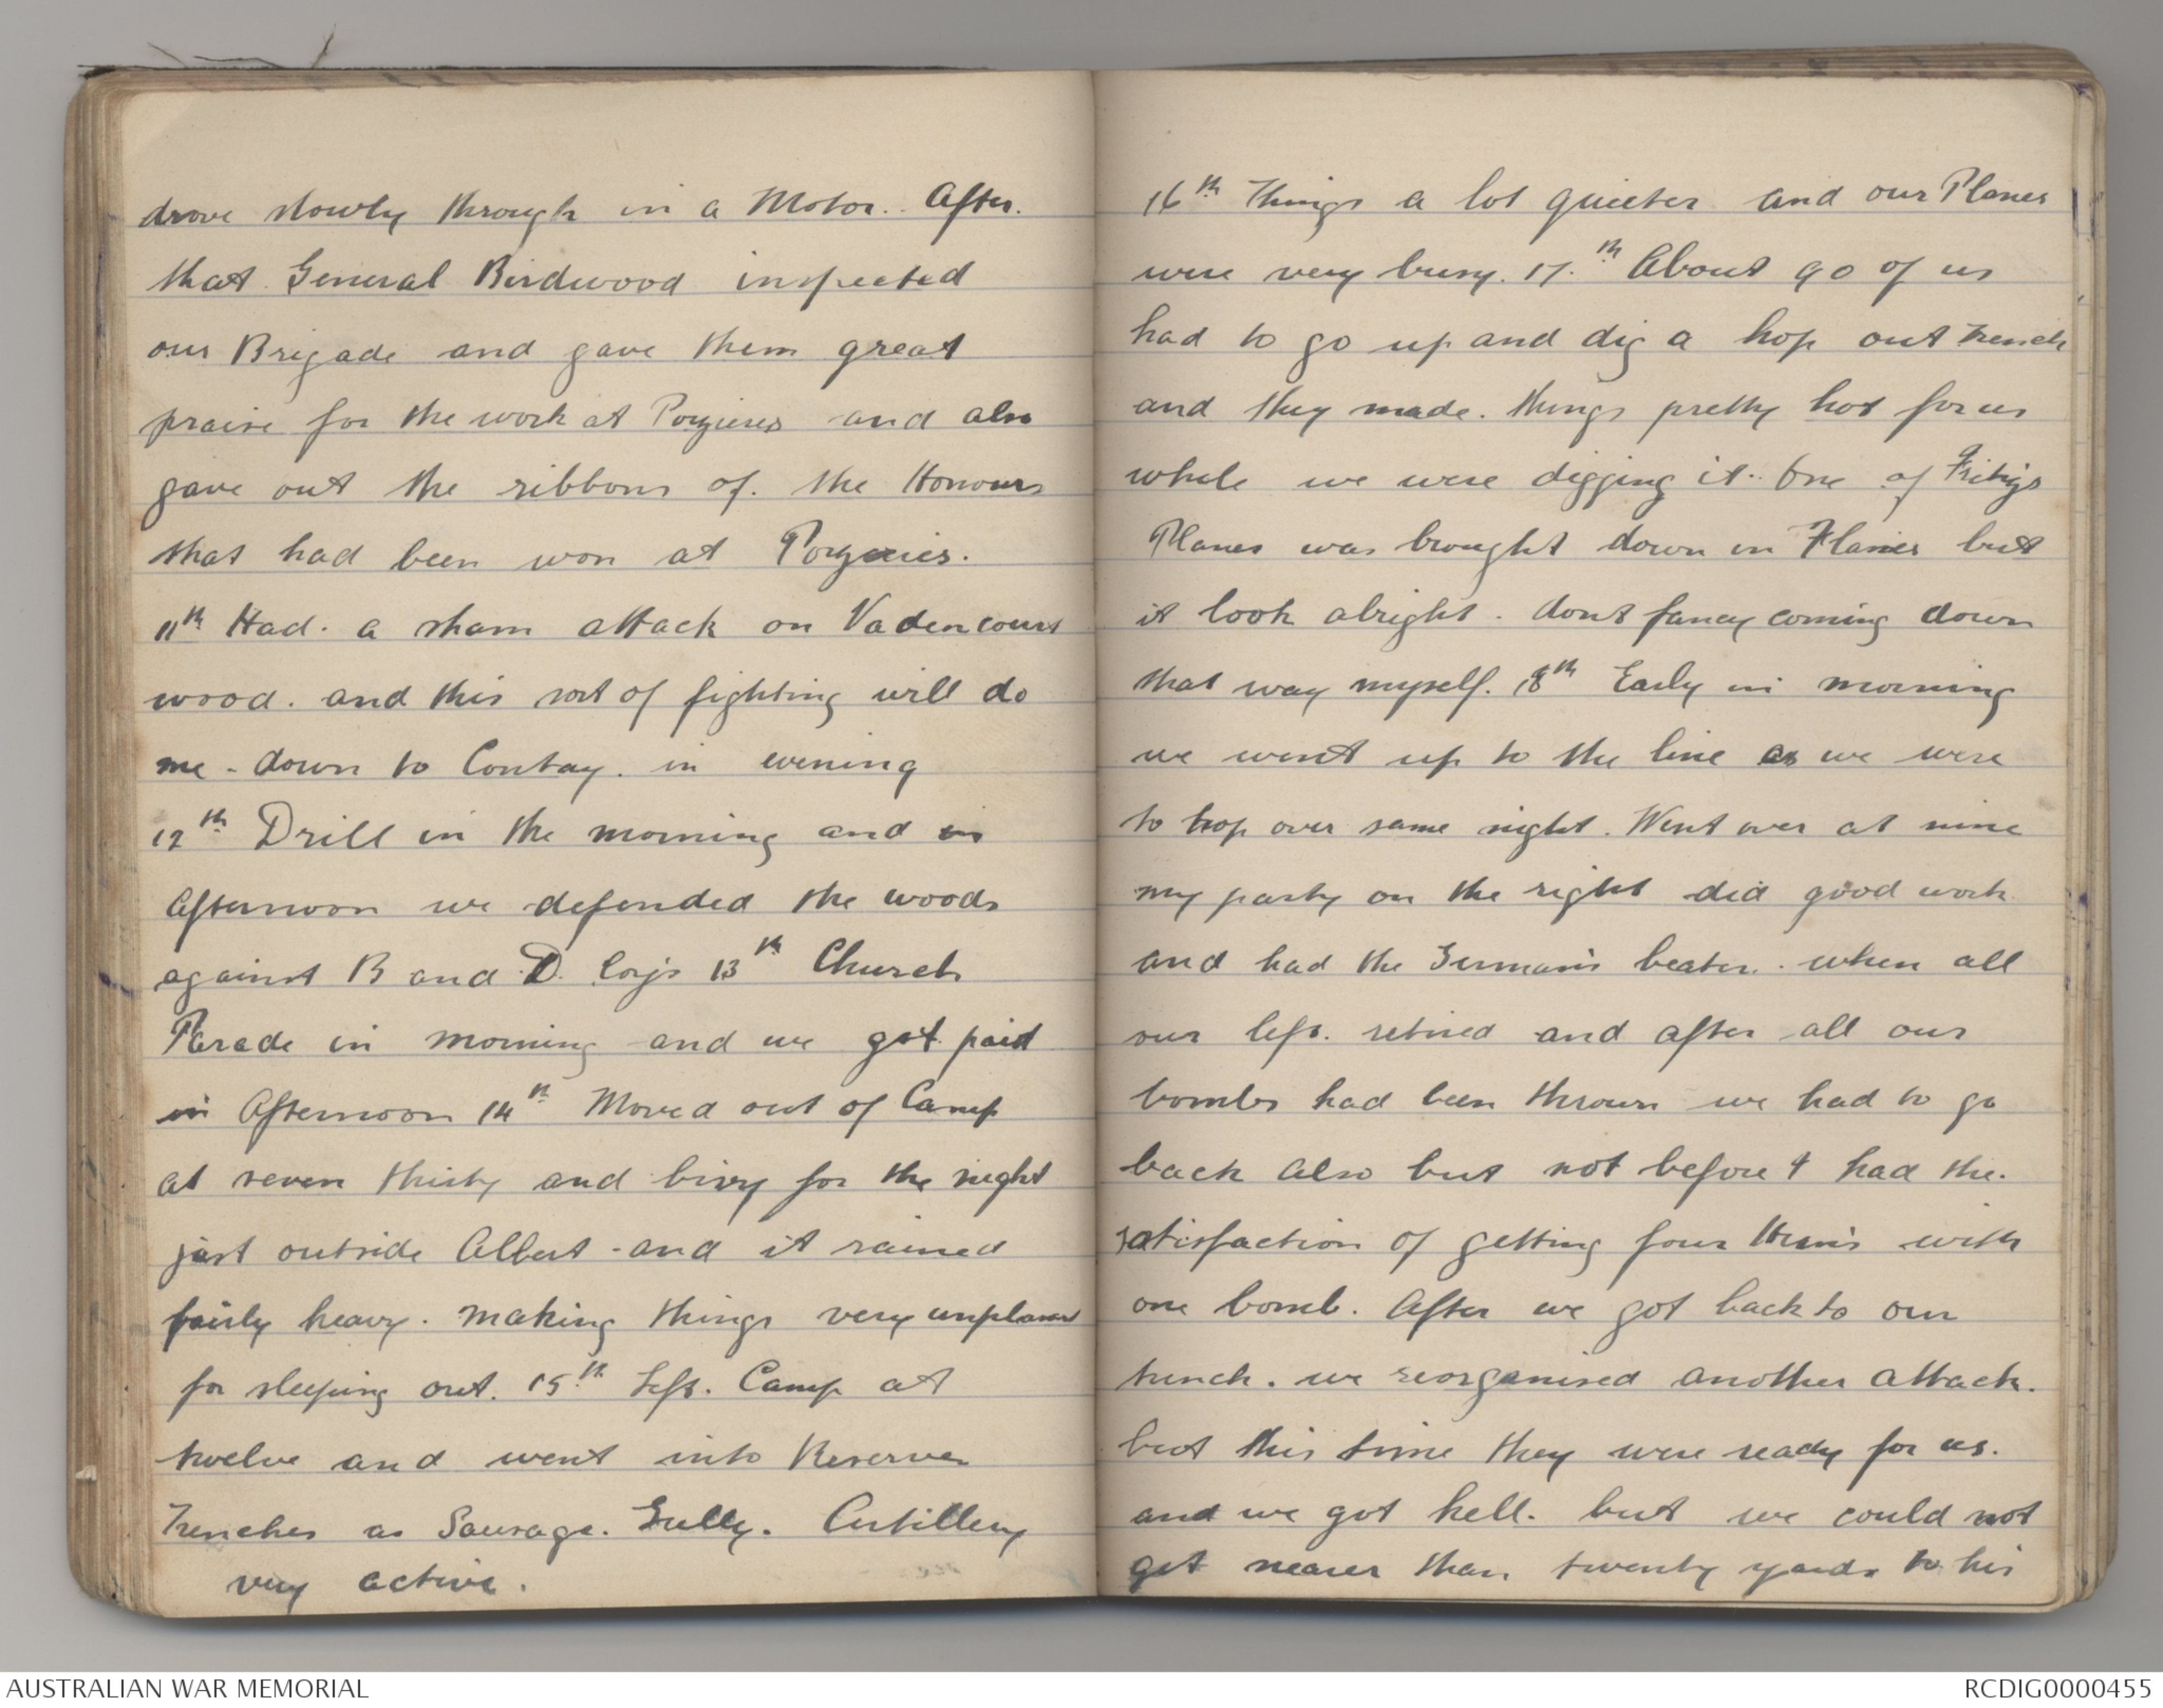 drove slowly through in a Motor. After.
that General Birdwood inspected
our Brigade and gave them great
praise for the work at Pozieres and also
gave out the ribbons of. the Honours
that had been won at
11th Had. a sham attack on Vadencourt
wood. and this sort of fighting will do
me - down to Contay. in evening
12th Drill in the morning and in
Afternoon we defended the woods
against B and D. Coy's 13th Church
Parade in morning and we got paid
in Afternoon 14th Moved out of Camp
at seven thirty and bivy for the night
just outside Albert - and it rained
fairly heavy. making things very unpleasant
for sleeping out. 15th Left. Camp at
twelve and went into Reserve
Trenches as Sausage. Gully. Artillery
very active.
16th Things a lot quieter and our Planes
were very busy. 17.th About 90 of us
had to go up and dig a hop out trench
and they made. things pretty hot for us
while we were digging it. One of Fritz's
Planes was brought down in Flames but
it look alright. dont fancy coming down
that way myself. 18th Early in morning
we went up to the line as we were
to hop over same night. Went over at nine
my party on the right did good work
and had the Germans beaten. when all
our left. retired and after all our
bombs had been thrown we had to go
back also but not before I had the.
satisfaction of getting four Huns with
one bomb. After we got back to our
trench. we reorganised another attack.
but this time they were ready for us.
and we got hell. but we could not
get nearer than twenty yards to his
AUSTRALIAN WAR MEMORIAL
RCDIG0000455